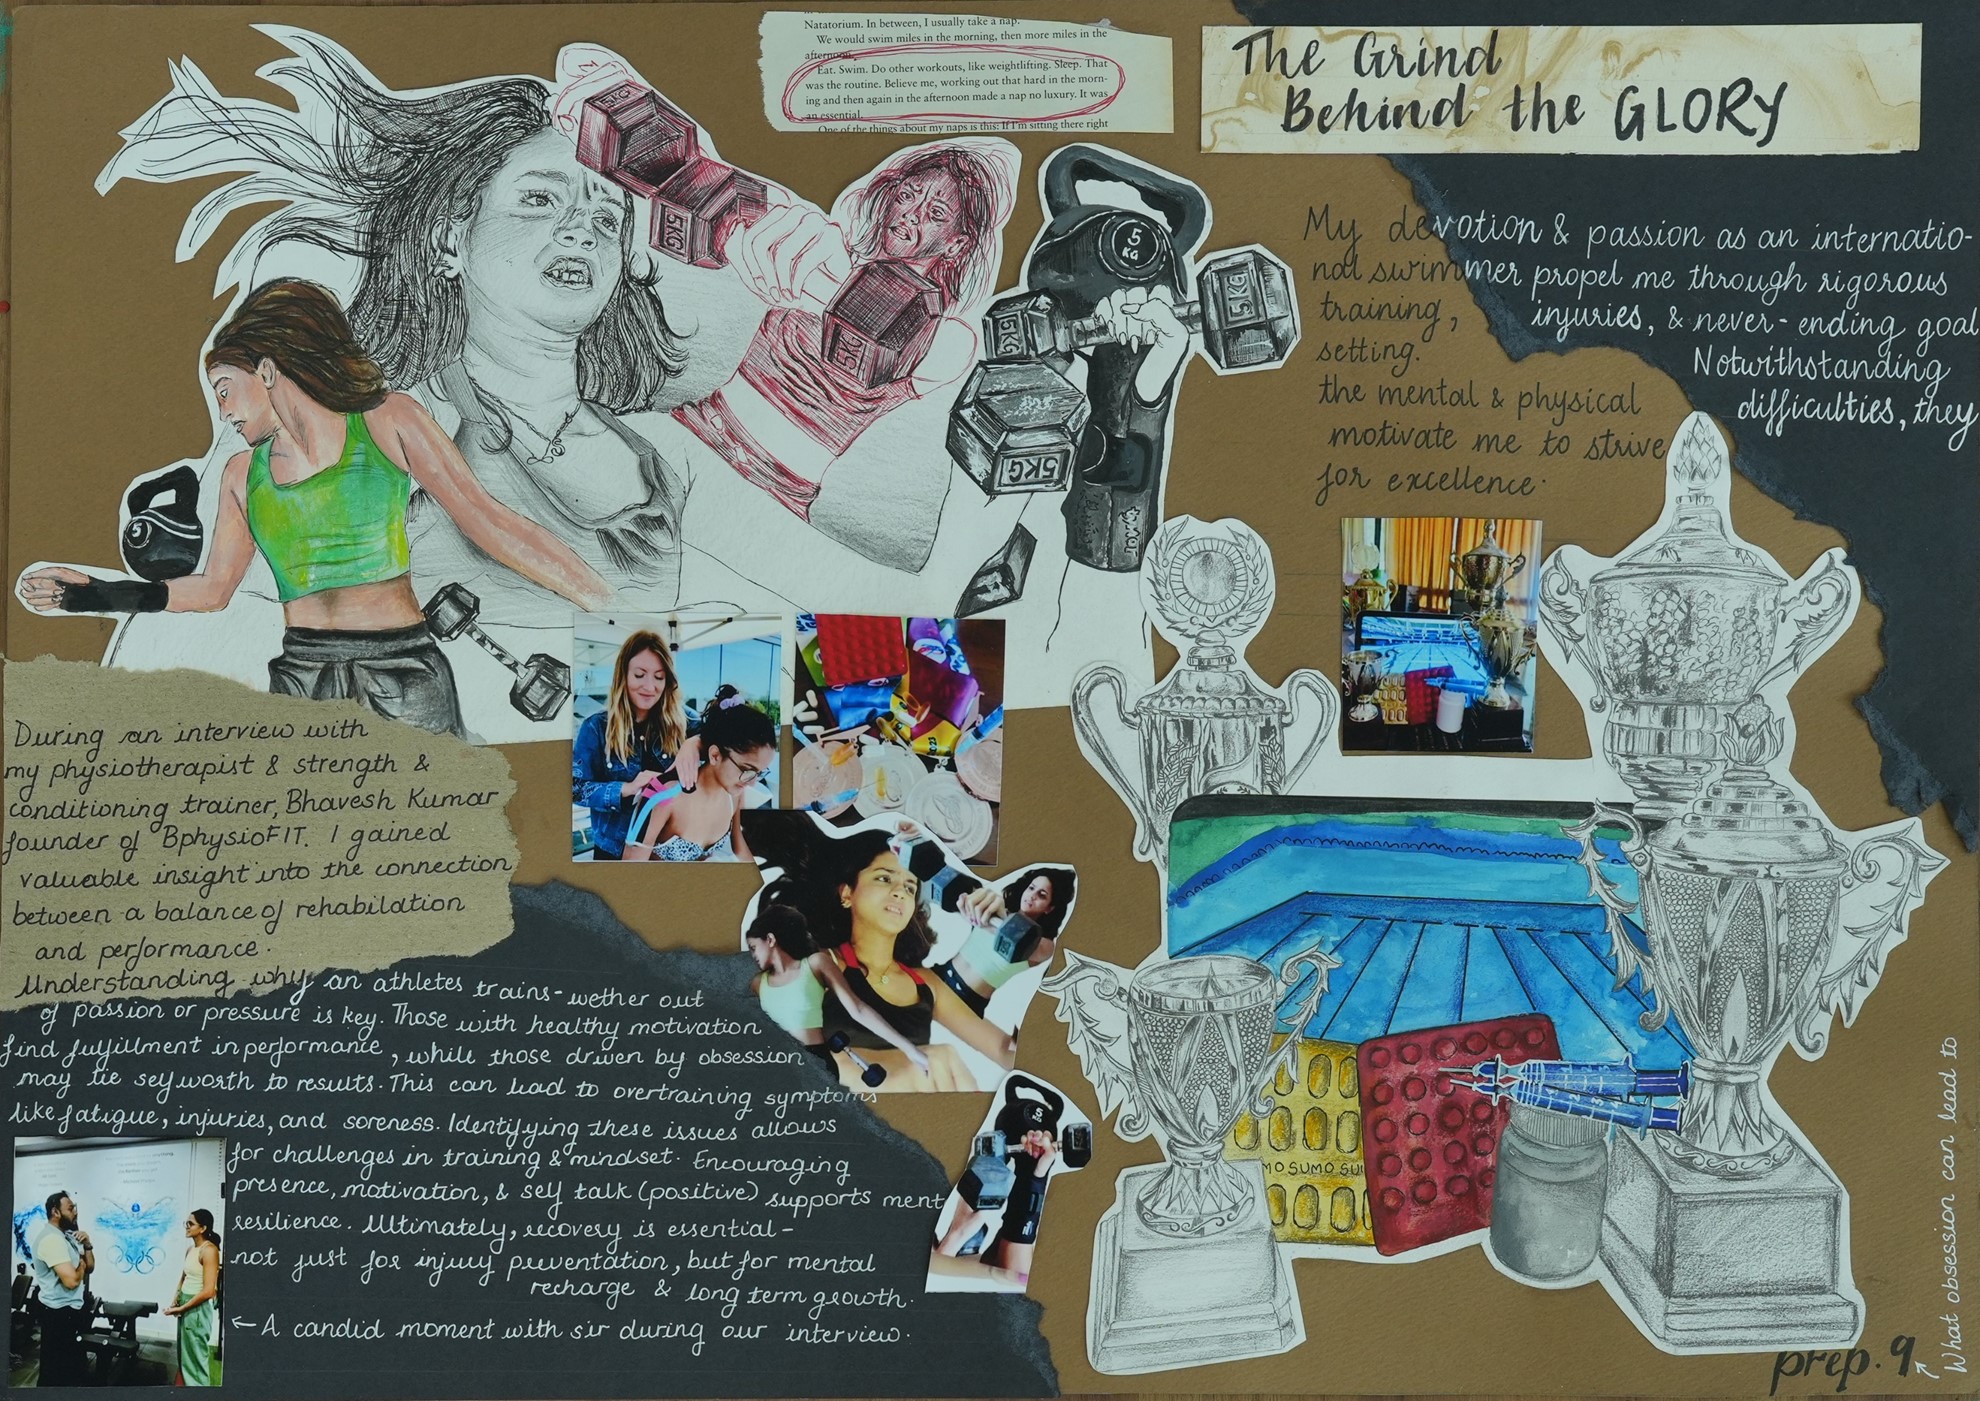 Natatorium. In between, I usually take a nap.
We would swim miles in the morning, then more miles in the
afternoon.
Eat. Swim. Do other workouts, like weightlifting. Sleep. That
was the routine. Believe me, working out that hard in the morn-
ing and then again in the afternoon made a nap no luxury. It was
an essential.
One of the things about my naps is this: If I'm sitting there right
The Grind
Behind the GLORY
My devotion & passion as an internatio-
nal swimmer propel me through rigorous
training, injuries, & never-ending goal
setting. Notwithstanding
the mental & physical difficulties, they
motivate me to strive
for excellence.
5KG
5KG
5KG
5
KG
5KG
5KG
5KG
5
During an interview with
my physiotherapist & strength &
conditioning trainer, Bhavesh Kumar
founder of BphysioFIT. I gained
valuable insight into the connection
between a balance of rehabilation
and performance.
Understanding why an athletes trains-wether out
of passion or pressure is key. Those with healthy motivation
find fulfillment in performance, while those driven by obsession
may tie selfworth to results. This can lead to overtraining symptoms
like fatigue, injuries, and soreness. Identifying these issues allows
for challenges in training & mindset. Encouraging
presence, motivation, & self talk (positive) supports ment
resilience. Ultimately, recovery is essential-
not just for injury preventation, but for mental
recharge & long term growth.
← A candid moment with sir during our interview.
5
MO SUMO SU
prep. 9
What obsession can lead to